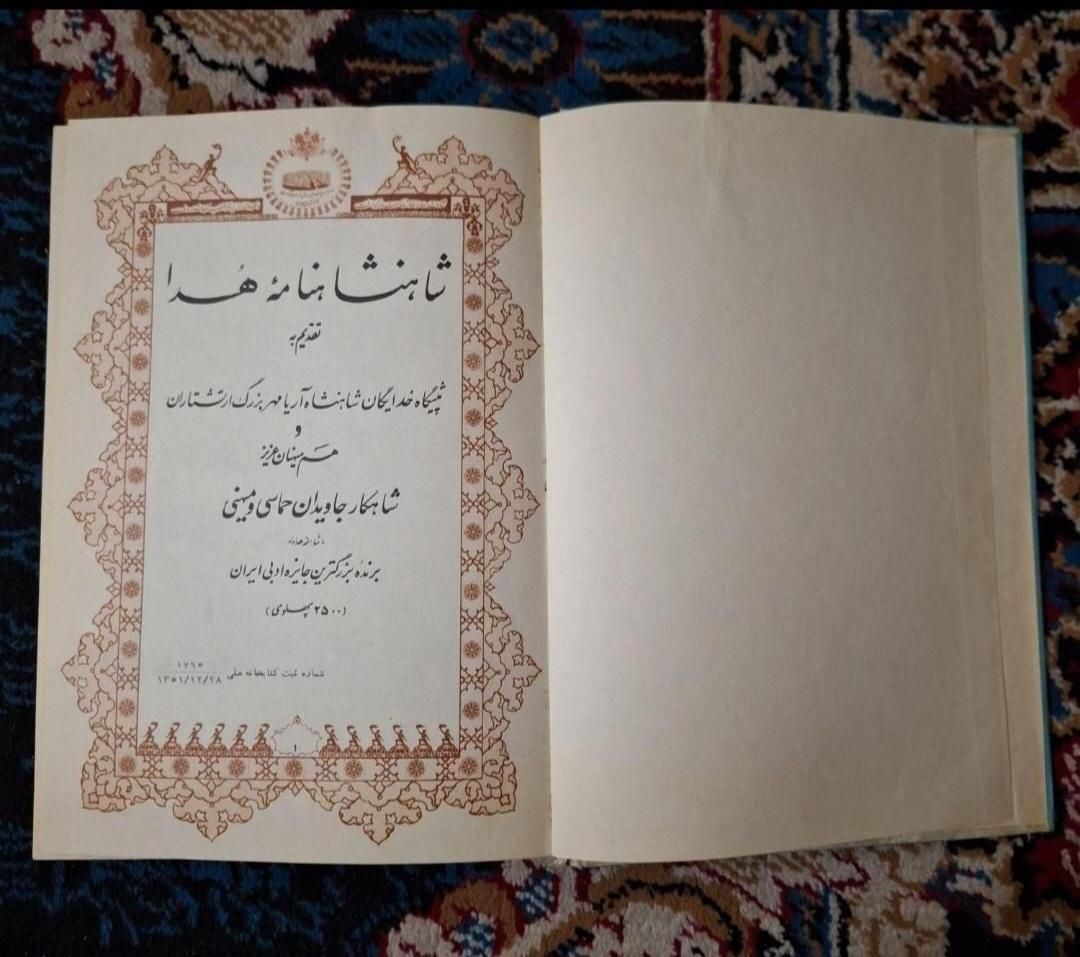 شاهنشاهنامهٔ هُدا
تقدیم به
پیشگاه خدایگان شاهنشاه آریامهر بزرگ ارتشتاران
و
هم میهنان عزیز
شاهکار جاویدان حماسی و میهنی
برندهٔ بزرگترین جایزه ادبی ایران
(۲۵۰۰ پهلوی)
شماره ثبت کتابخانه ملی ۱۷۶۵
۱۳۵۱/۱۲/۲۸
۱